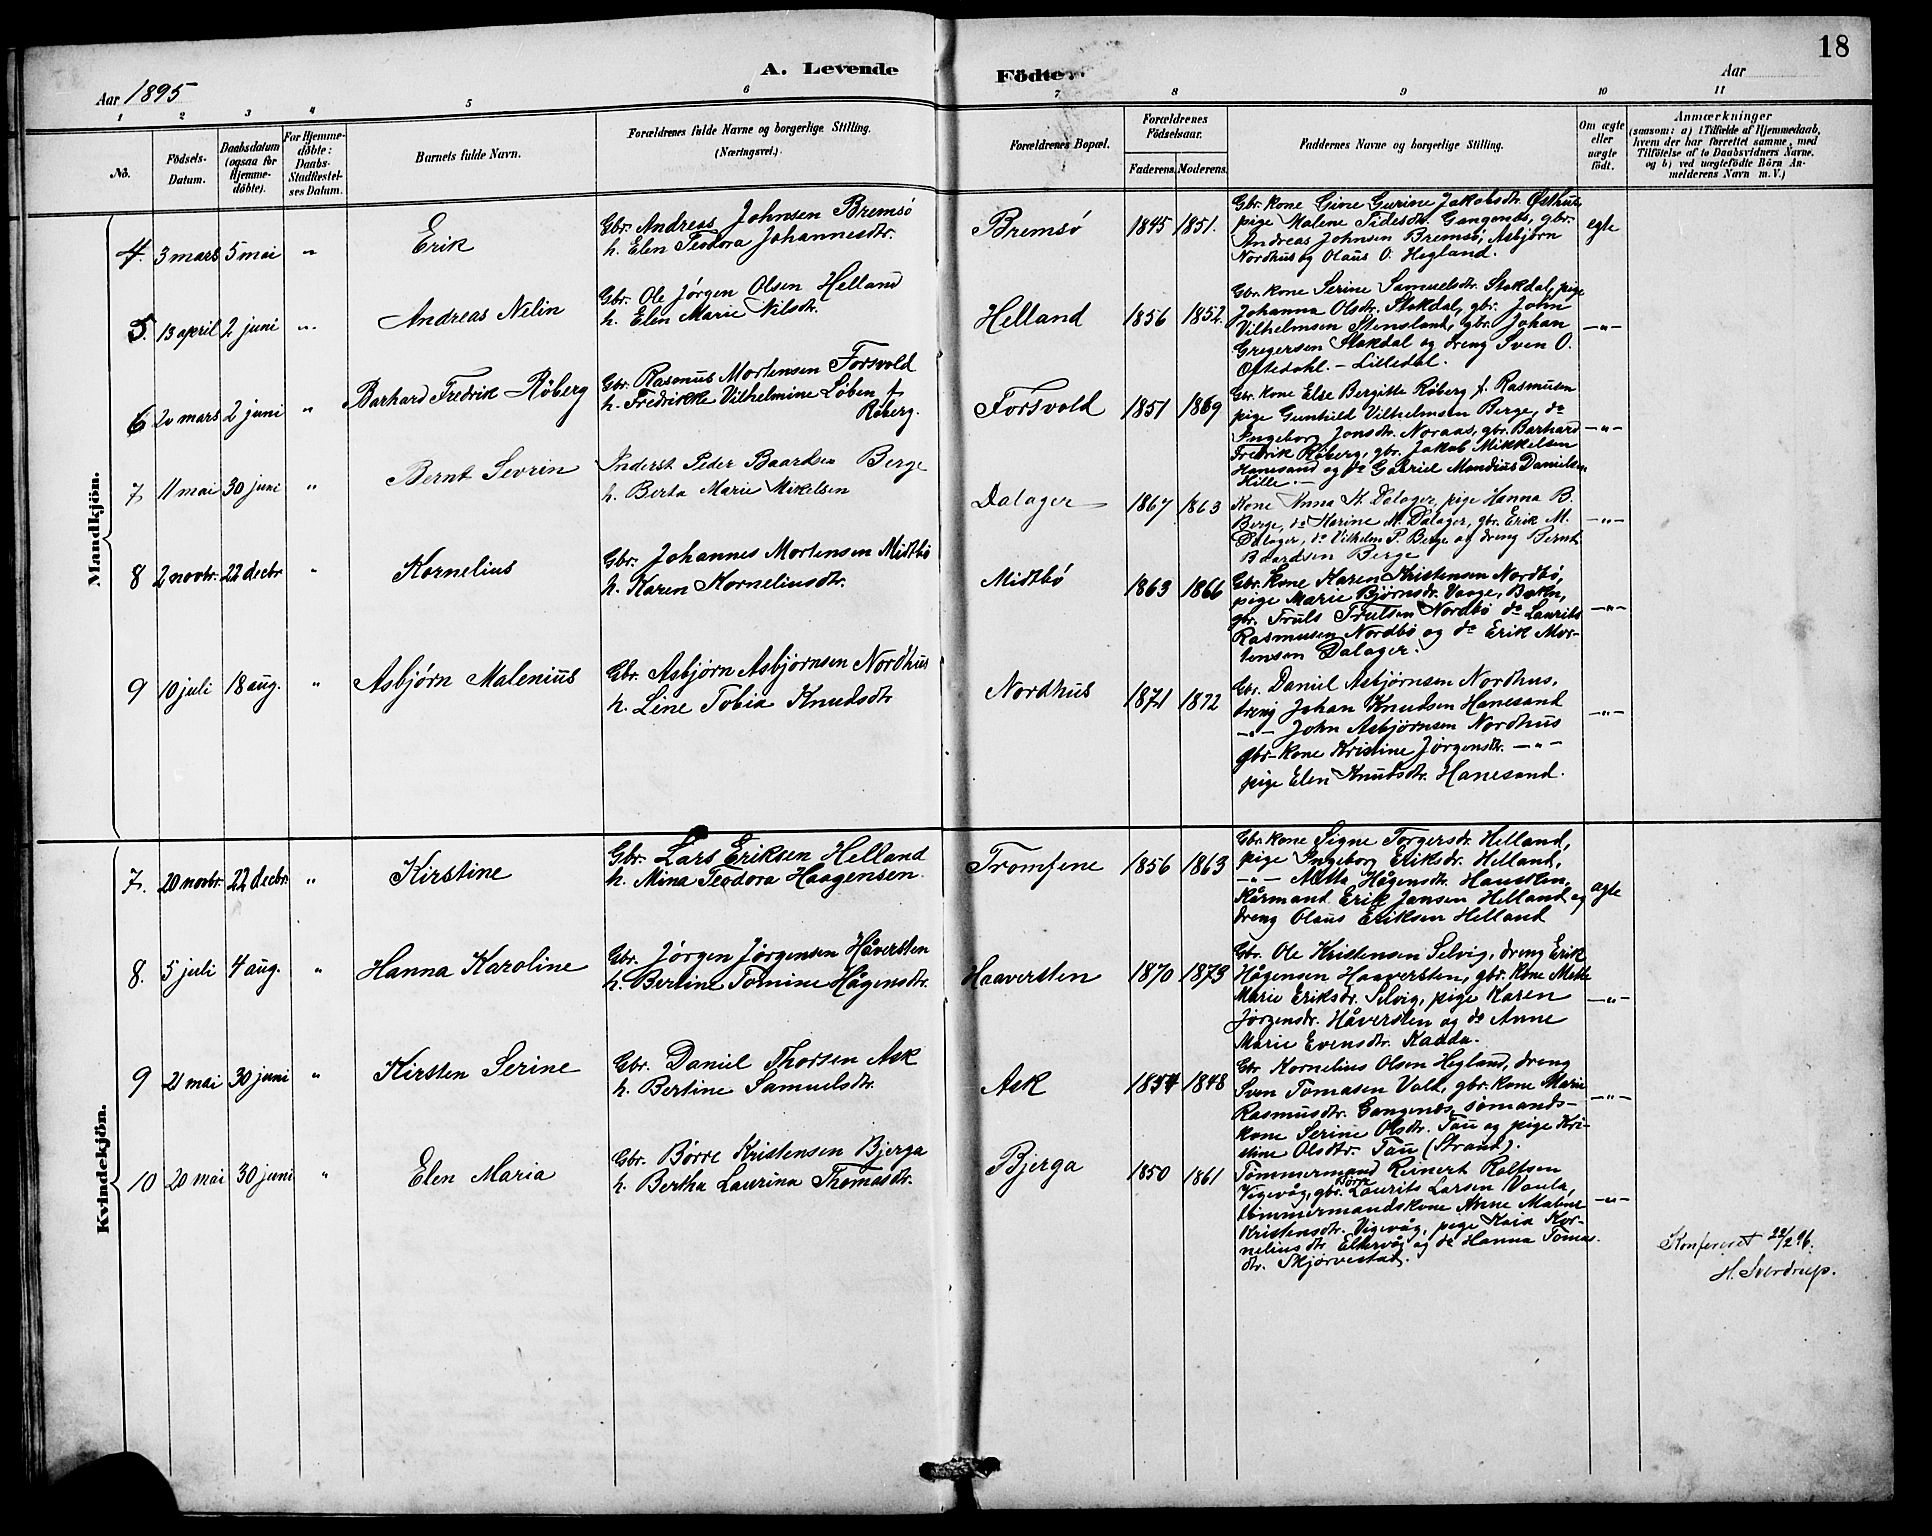 18
A. Levende Födte.
Aar 1895
Aar
1 2 3 4 5 6 7 8 9 10 11
No.
Födsels-Datum.
Daabsdatum (ogsaa for Hjemme-döbte).
For Hjemme-döbte: Daabs-Stadfæstel-ses Datum.
Barnets fulde Navn.
Forældrenes fulde Navne og borgerlige Stilling. (Næringsvei.)
Forældrenes Bopæl.
Forældrenes Födselsaar.
Faderens. Moderens.
Faddernes Navne og borgerlige Stilling.
Om ægte eller uægte födt.
Anmærkninger
(saasom: a) i Tilfælde af Hjemmedaab,
hvem der har forrettet samme, med
Tilföielse af to Daabsvidners Navne.
og b) ved uægtefödte Börn An-
melderens Navn m. V.)
Mandkjön.
4. 3 mars 5 mai " Erik
Gbr. Andreas Johnsen Bremsö
h. Elen Teodora Johannesdtr.
Bremsö 1845 1851.
Gbr. kone Gine Gurine Jakobsdtr. Østhus
pige Malene Tidesdtr. Gangenæs, gbr.
Andreas Johnsen Bremsö, Asbjørn
Nordhus og Olaus O. Hegland.
egte
5. 13 april 2 juni " Andreas Nelin
Gbr. Ole Jörgen Olsen Helland
h. Elen Marie Nilsdtr.
Helland 1856 1852.
Gbr. kone Serine Samuelsdtr. Stokdal, pige
Johanna Olsdtr. Stokdal, gbr. John
Vilhelmsen Stensland, gbr. Johan
Gregersen Stokdal og dreng Sven O.
Oftedahl. – Lilledal.
–"–
6 20 mars 2 juni " Barhard Fredrik Röberg
Gbr. Rasmus Mortensen Forsvold
h. Fredrikke Vilhelmine Löben f.
Röberg.
Forsvold 1851 1869
Gbr. kone Else Bergitte Röberg f. Rasmusen
pige Gunhild Vilhelmsen Berge, do
Ingeborg Jonsdtr. Noraas, gbr. Barhard
Fredrik Röberg, gbr. Jakob Mikkelsen
Hanesand og do Gabriel Mandius Danielsen
Hille. –
–"–
7 11 mai 30 juni " Bernt Sevrin
Inderst Peder Baardsen Berge
h. Berta Marie Mikelsen
Dalager 1867 1863
Kone Anna K. Dalager, pige Hanna B.
Berge, do Karine M. Dalager, gbr. Erik M.
Dalager, do Vilhelm P. Berge og dreng Bernt
Baardsen Berge
–"–
8 2 novbr. 22 decbr " Kornelius
Gbr. Johannes Mortensen Midtbö
h. Karen Korneliusdtr.
Midtbö 1863 1866
Gbr. kone Karen Kristensen Nordbö,
pige Marie Bjørnsdr. Vaage, Bokn,
gbr. Truls Trulsen Nordbö do Laurits
Rasmusen Nordbö og do Erik Mor-
tensen Dalager.
–"–
9 10 juli 18 aug. " Asbjörn Malenius
Gbr. Asbjørn Asbjørnsen Nordhus
h. Line Tobia Knudsdtr
Nordhus 1871 1872
Gbr. Daniel Asbjørnsen Nordhus,
dreng Johan Knudsen Hanesand
–"– John Asbjørnsen Nordhus
gbr-kone Kristine Jørgensdtr. –"–
pige Elen Knudsdtr. Hanesand.
–"–
Kvindekjön.
7. 20 novbr. 22 decbr. " Kirstine
Gbr. Lars Eriksen Helland
h. Mina Teodora Haagensen
Tromfene 1856 1863
Gbr kone Signe Torgersdr. Helland,
pige Ingeborg Eriksdr. Helland,
–"– Mette Hågensdtr. Haustlen,
Kårmand Erik Jansen Helland og
dreng Olaus Eriksen Helland
ægte
8. 5 juli 4 aug. " Hanna Karoline
Gbr. Jörgen Jørgensen Håversten
h. Bertine Tomine Hågensdtr.
Haaversten 1870 1873
Gbr. Ole Kristensen Selvig, dreng Erik
Hågensen Haaversten, gbr. kone Mette
Marie Eriksdr. Selvig, pige Karen
Jørgensdr. Håversten og do Anne
Marie Evensdtr. Kadda.
–"–
9 21 mai 30 juni " Kirsten Serine
Gbr. Daniel Thorsen Ask
h. Bertine Samuelsdtr.
Ask 1854 1848
Gbr Kornelius Olsen Hegland, dreng
Sven Tomasen Vold, gbr. kone Marie
Rasmusdtr. Gangenæs, sömands-
kone Serine Olsdtr. Tau og pige Kri-
stine Olsdtr. Tau (Strand).
–"–
10 20 mai 30 juni " Elen Maria
Gbr. Börre Kristensen Bjerga
h. Bertha Laurina Thomasdtr.
Bjerga 1850 1861
Tömmermand Reinert Roltsen
Vigevåg, gbr. Börre Laurits Larsen Vaula,
tömmermandskone Anne Malene
Kristensdtr. Vigevåg, pige Kaia Kor-
nelius dtr Eltervåg og do Hanna Tomas-
dtr. Skjørvestad.
–"–
Konfereret 22/2 96.
H. Sverdrup.